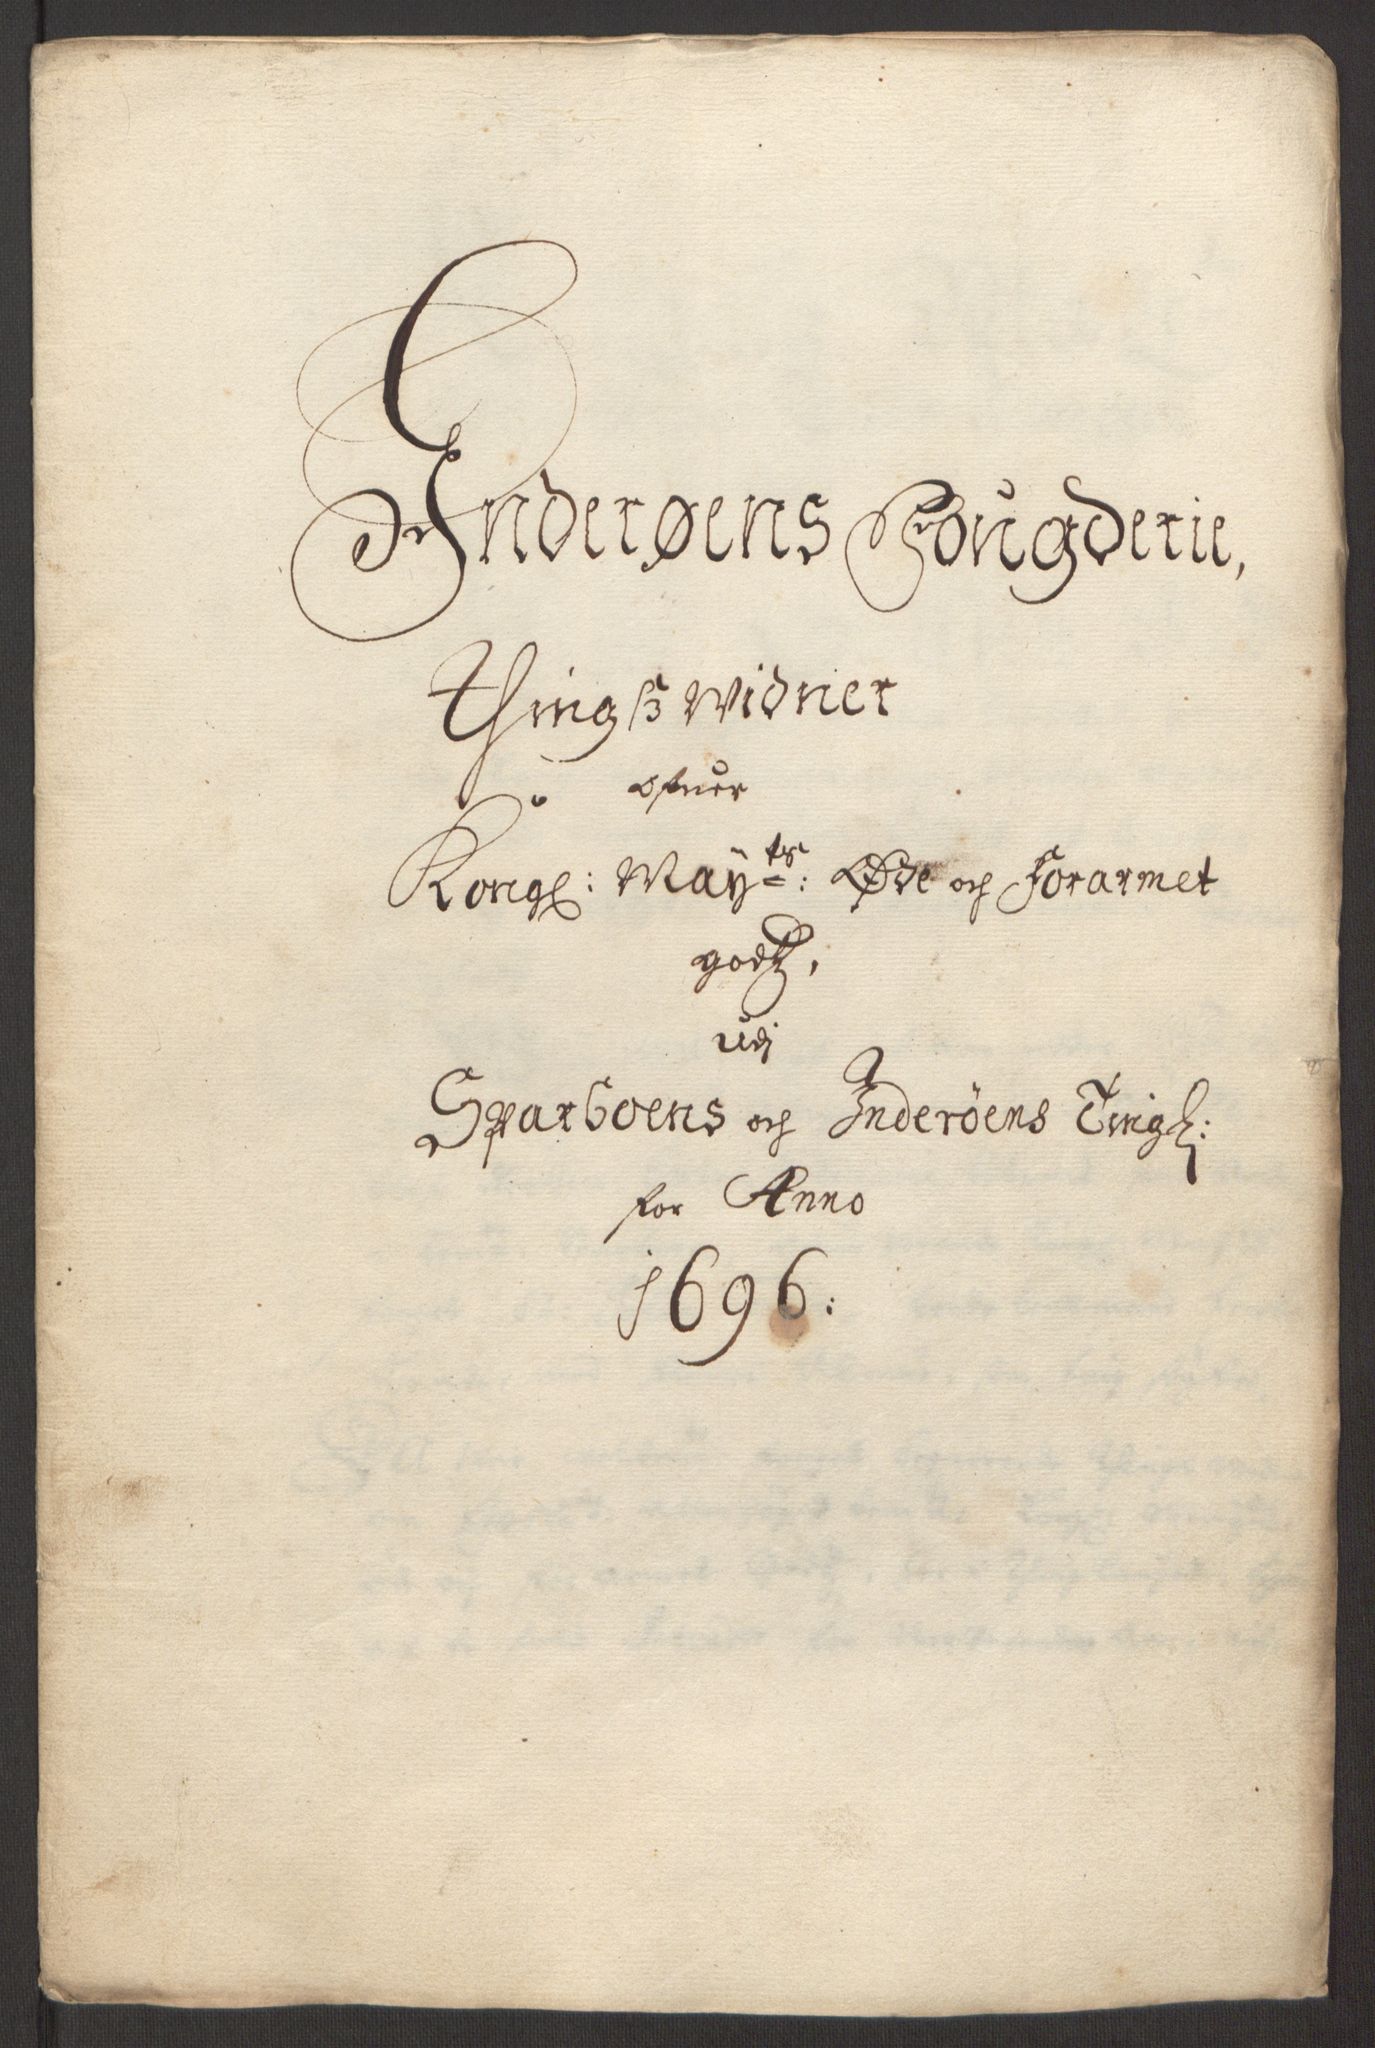 Inderøens Fougderie,
Thingsz Widner
ofuer
Kongl: Maÿ:ts: Øde och Forarmet
godtz,
udj
Sparboens och Inderöens Tingl:
for Anno
1696: